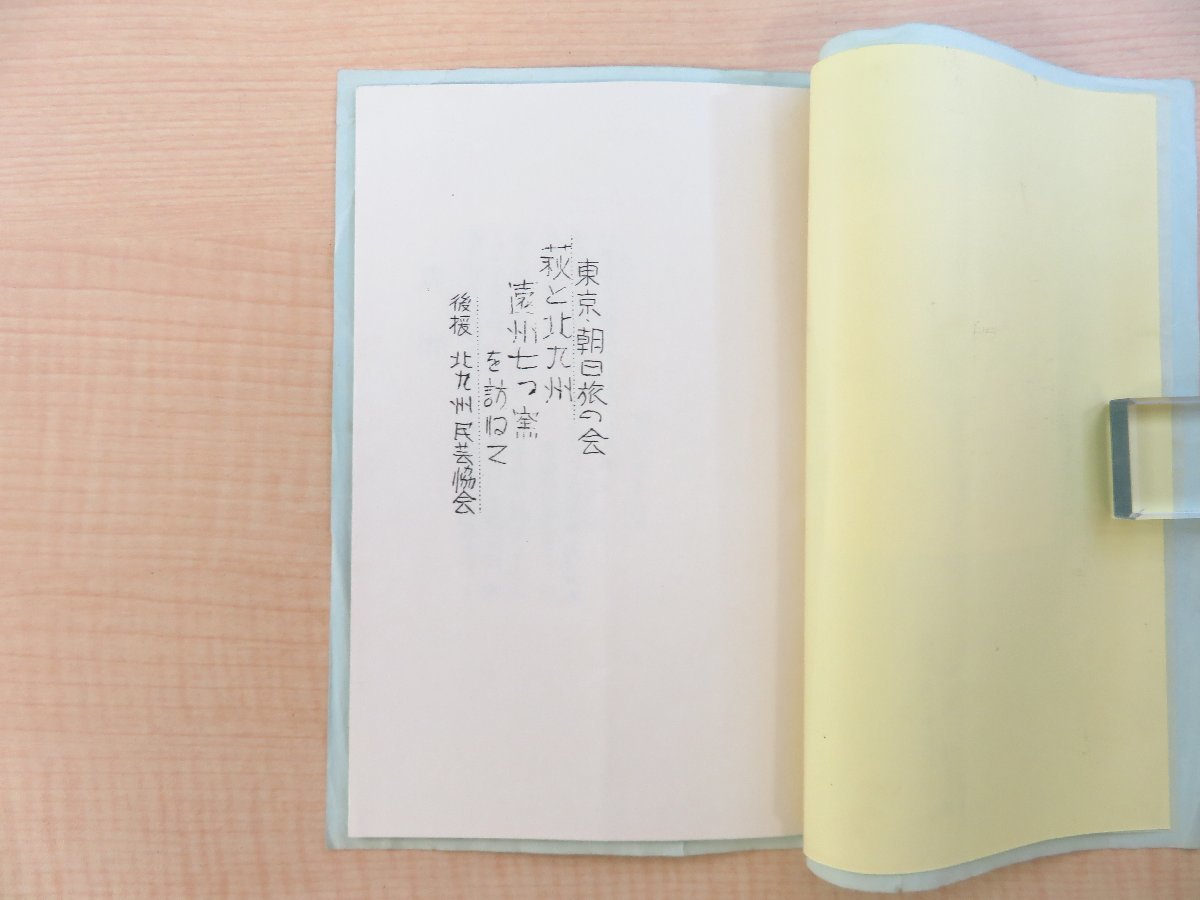 東京・朝日旅の会
萩と北九州
遠州七つ窯
を訪ねて
後援 北九州民芸協会